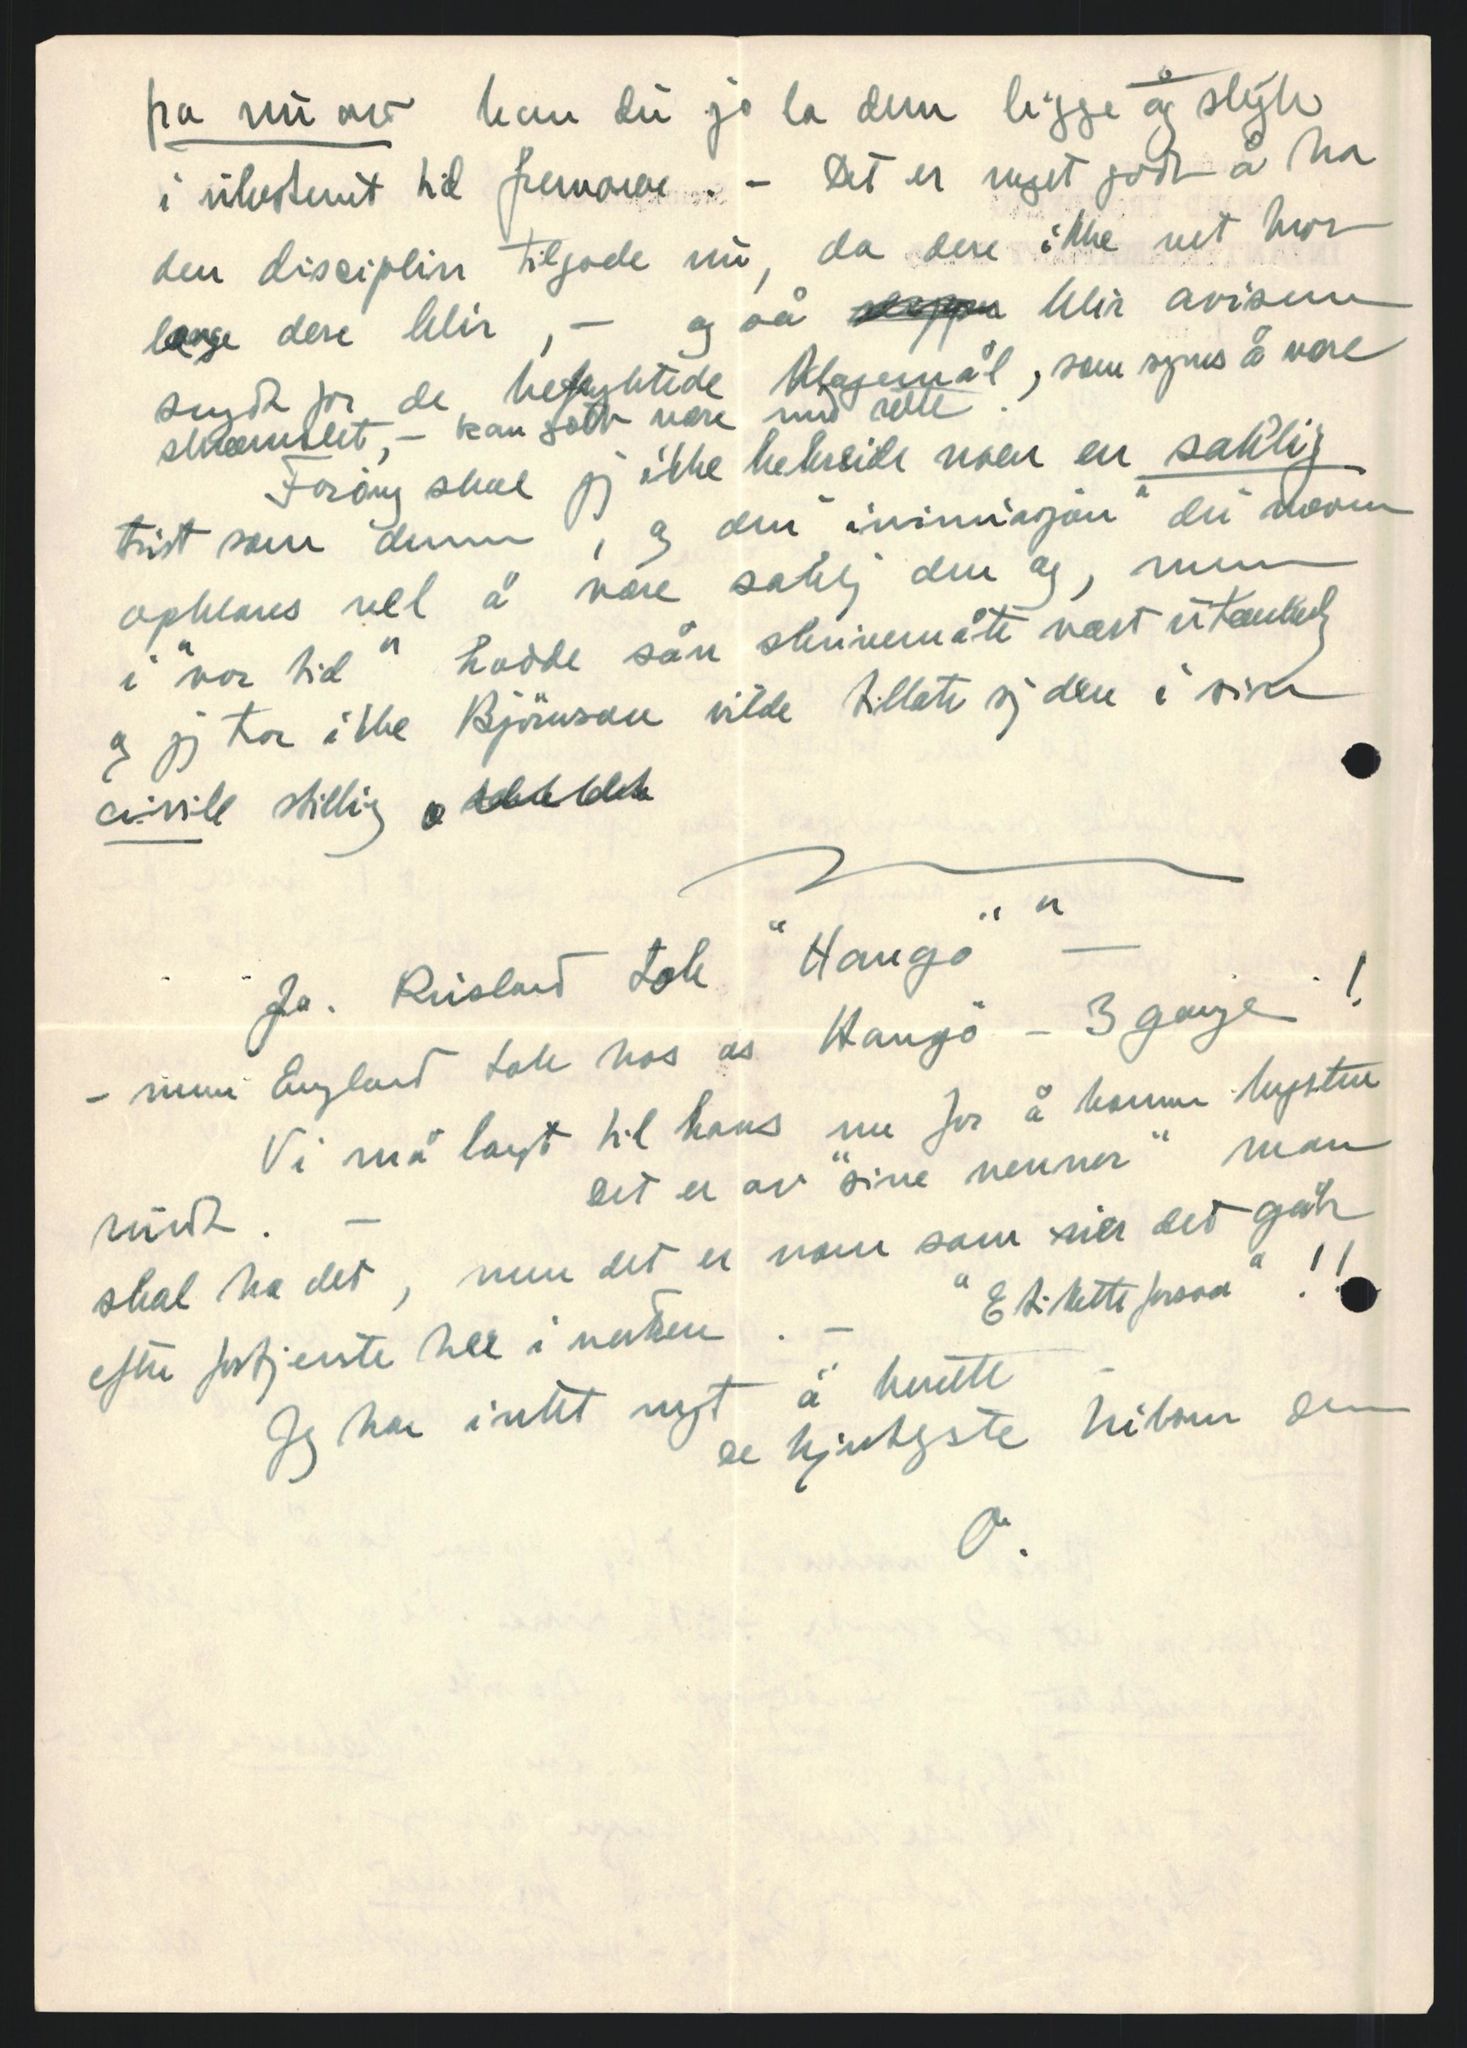 fra nu av kan du jo la dem ligge og
i ubestemt tid fremover. - Det er meget godt å ha
den disciplin tilgode nu, da dere ikke vet hvor
længe dere blir, - og så blir avisene
snydt for de befryktede klagemål, som synes å være
- kan godt være med rette.
Forøvrig skal jeg ikke bebreide noen en saklig
som denne, og den du nævner
opklares vel å være saklig den og, men
i "vor tid" hadde sån skrivemåte vært utænkelig
og jeg tror ikke Björnson vilde tillate sig den i sin
civile stilling
Ja. Rusland tok "Hangö" -
- men England tok hos os Hangö - 3 gange!
Vi må langt til hans nu for å komme kysten
rundt. - Det er av "sine venner" man
skal ha det, men det er noen som sier det går
efter fortjeneste her i verden. - "Etikette forsvar"!!
Jeg har intet nyt å berette -
De hjerteligste hilsener din
O.